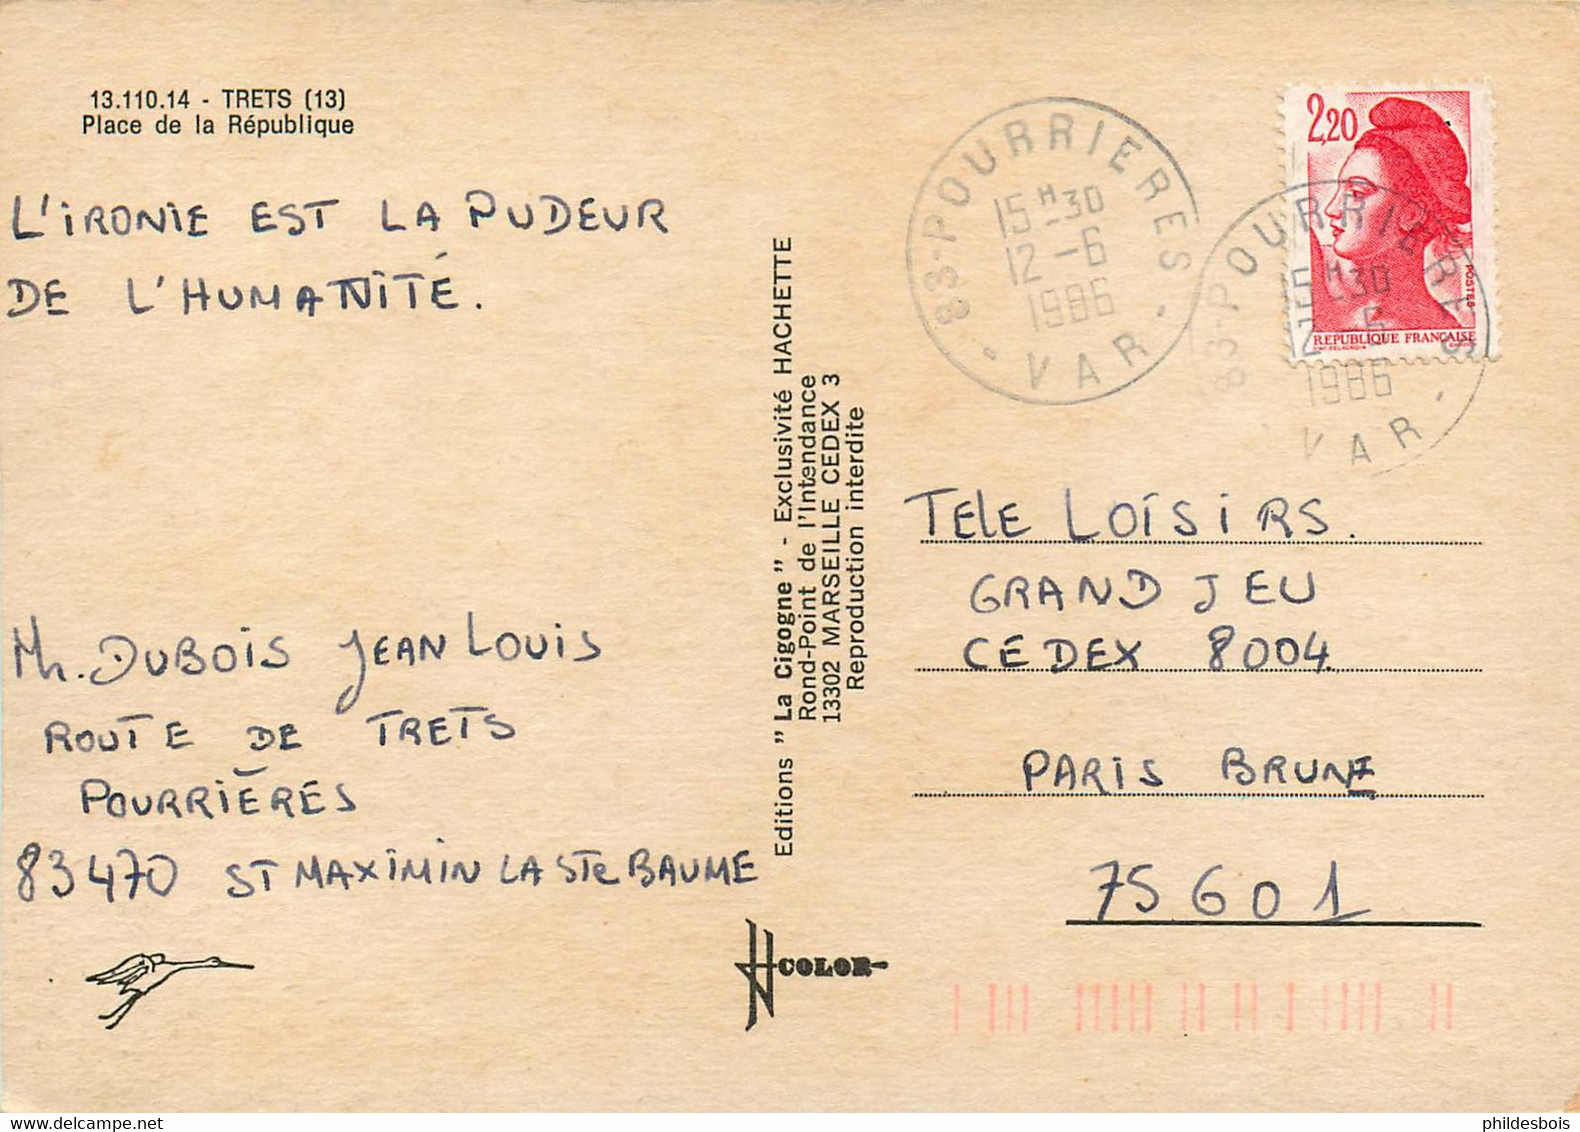 13.110.14 - TRETS (13)
Place de la République
L'IRONIE EST LA PUDEUR
DE L'HUMANITÉ.
Mr. DUBOIS JEAN LOUIS
ROUTE DE TRETS
POURRIÈRES
83470 ST MAXIMIN LA STe BAUME
Editions "La Cigogne" - Exclusivité HACHETTE
Rond-Point de l'Intendance
13302 MARSEILLE CEDEX 3
Reproduction interdite
COLOR
83-POURRIERES
15 H 30
12 -6
1986
VAR
2,20
POSTES
REPUBLIQUE FRANÇAISE
83-POURRIERES
15 H 30
12 -6
1986
VAR
TELE LOISIRS.
GRAND JEU
CEDEX 8004
PARIS BRUNE
75601
phildesbois